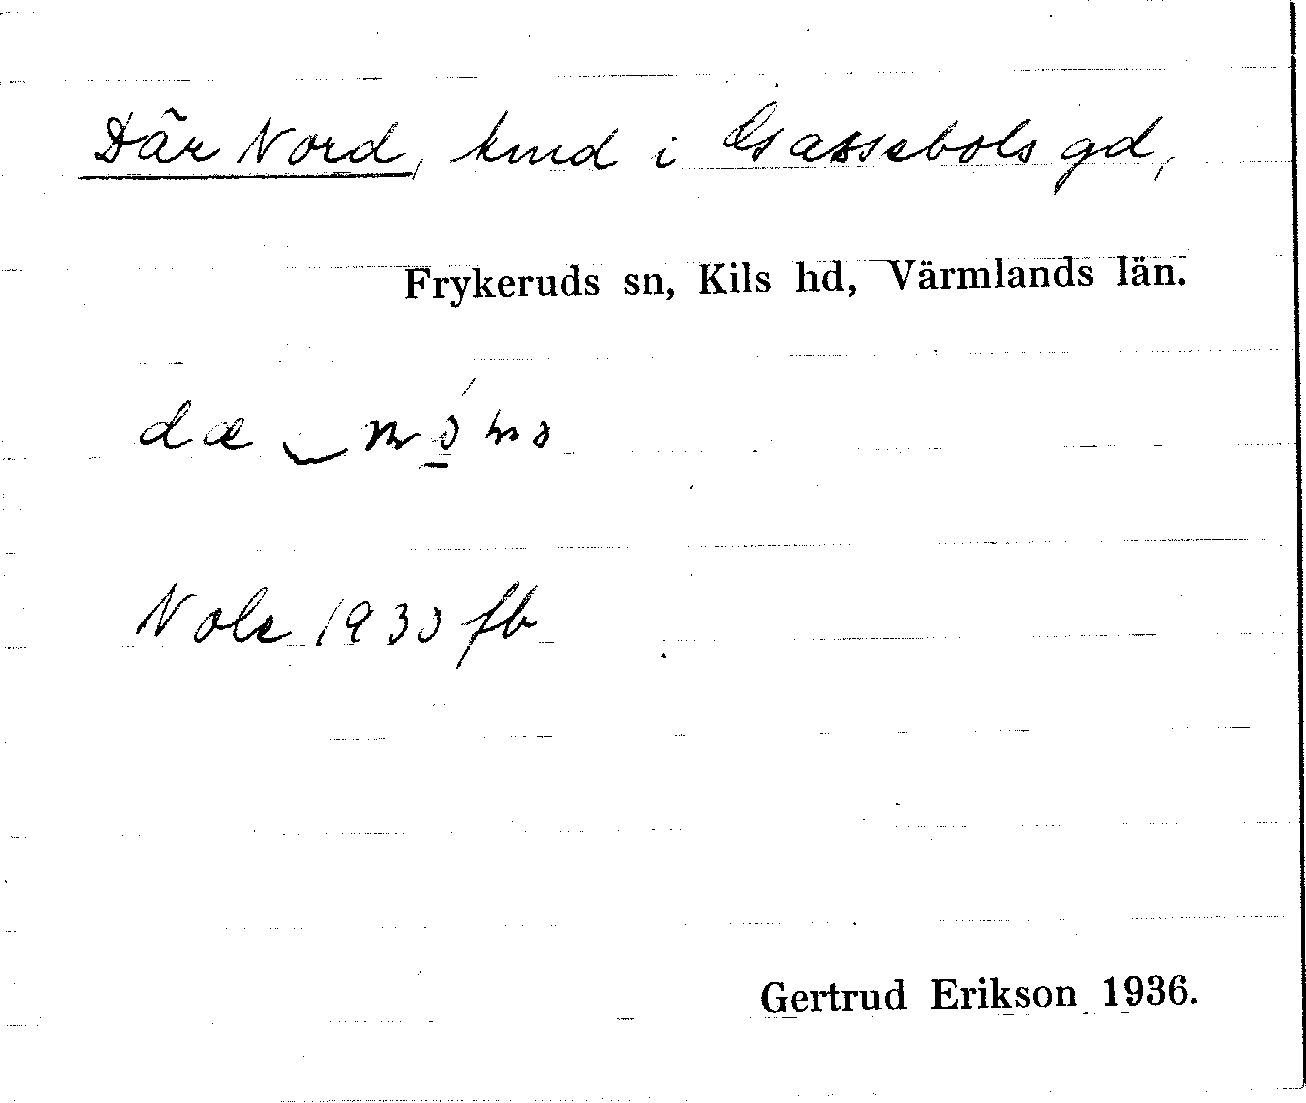 Där Nord, kmd i Gassebols gd,
Frykeruds sn, Kils hd, Värmlands län.
dæ
Nole 1930 fb
Gertrud Erikson 1936.